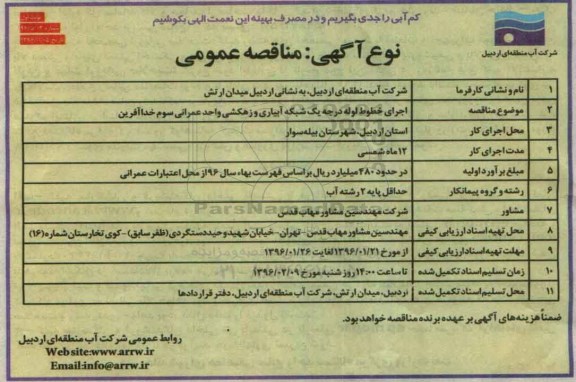 کم آبی را جدی بگیریم و در مصرف بهینه این نعمت الهی بکوشیم
شرکت آب منطقه‌ای اردبیل
نوع آگهی: مناقصه عمومی
۱ نام و نشانی کارفرما شرکت آب منطقه‌ای اردبیل، به نشانی اردبیل میدان ارتش
۲ موضوع مناقصه اجرای خطوط لوله درجه یک شبکه آبیاری و زهکشی واحد عمرانی سوم خداآفرین
۳ محل اجرای کار استان اردبیل، شهرستان بیله‌سوار
۴ مدت اجرای کار ۱۲ ماه شمسی
۵ مبلغ برآورد اولیه در حدود ۴۸۰ میلیارد ریال بر اساس فهرست بهاء سال ۹۶ از محل اعتبارات عمرانی
۶ رشته و گروه پیمانکار حداقل پایه ۲ رشته آب
۷ مشاور شرکت مهندسین مشاور مهاب قدس
۸ محل تهیه اسناد ارزیابی کیفی مهندسین مشاور مهاب قدس - تهران - خیابان شهید وحید دستگردی (ظفر سابق) - کوی تخارستان شماره (۱۶)
۹ مهلت تهیه اسناد ارزیابی کیفی از مورخ ۱۳۹۶/۰۱/۲۱ لغایت ۱۳۹۶/۰۱/۲۶
۱۰ زمان تسلیم اسناد تکمیل شده تا ساعت ۱۴:۰۰ روز شنبه مورخ ۱۳۹۶/۰۲/۰۹
۱۱ محل تسلیم اسناد تکمیل شده اردبیل، میدان ارتش، شرکت آب منطقه‌ای اردبیل، دفتر قراردادها
ضمناً هزینه‌های آگهی بر عهده برنده مناقصه خواهد بود.
روابط عمومی شرکت آب منطقه‌ای اردبیل
Web site:www.arrw.ir
Email:info@arrw.ir
ParsNamadData